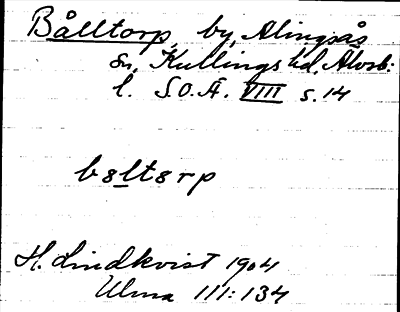 Bålltorp, by, Alingsås
sn, Kullings hd, Älvsb:
l. S.O.Ä. VIII s. 14
b8lt8rp
H. Lindkvist 1904
Ulma III: 134